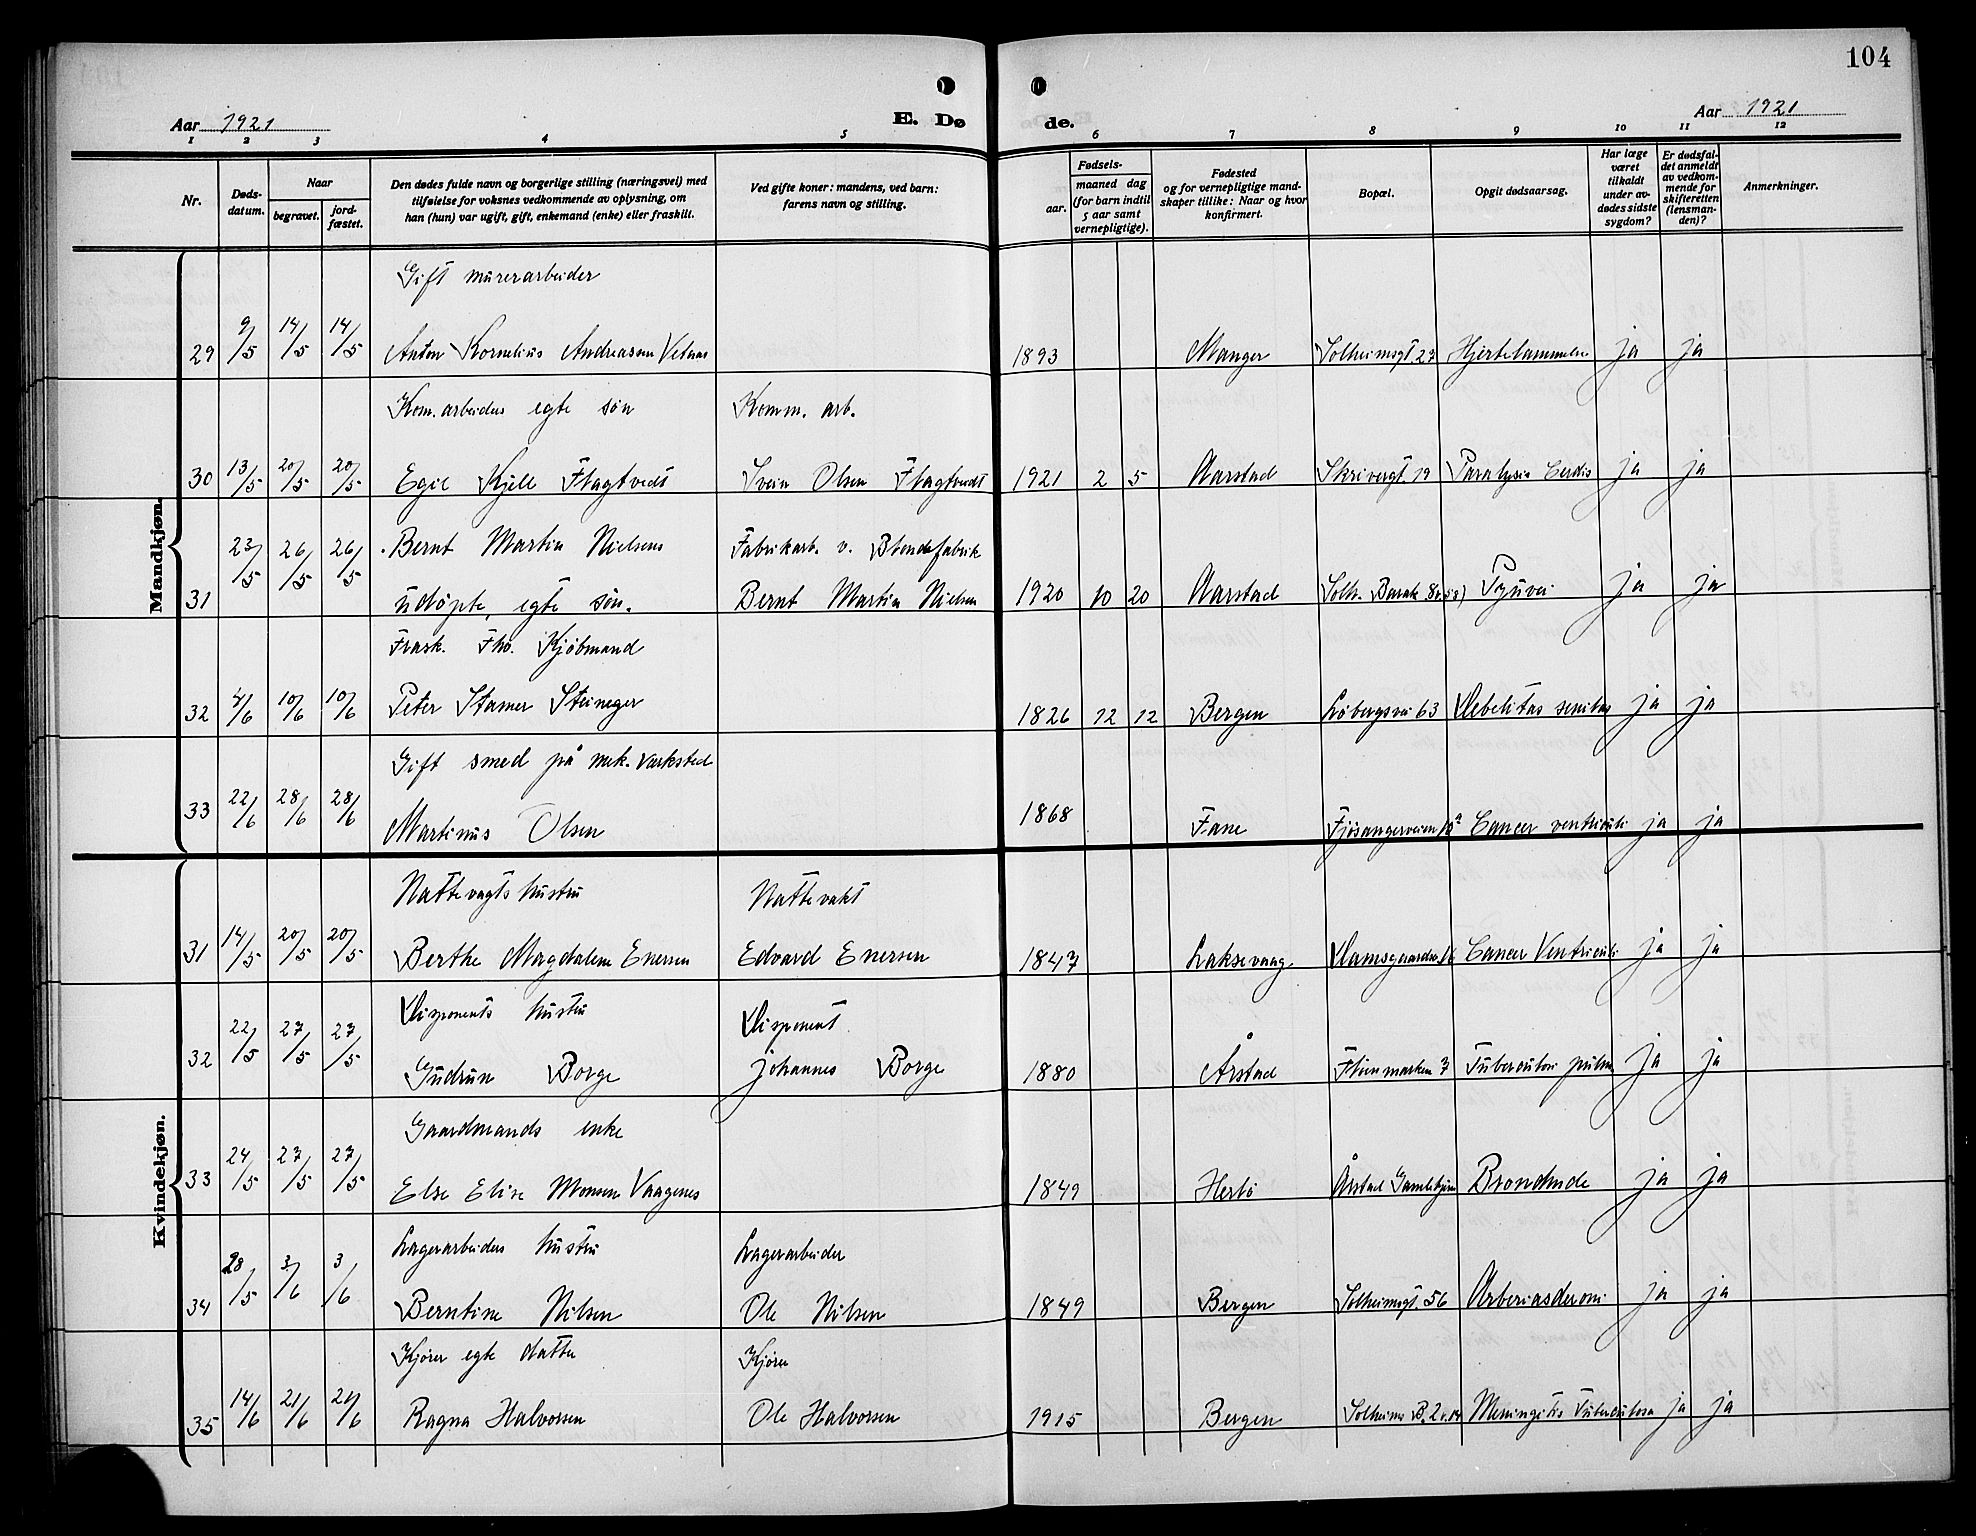 104
Aar 1921
E. Dø
de.
Aar 1921
1 2 3 4 5 6 7 8 9 10 11 12
Nr.
Døds-
datum.
Naar
begravet.
jord-
fæstet.
Den dødes fulde navn og borgerlige stilling (næringsvei) med
tilføielse for voksnes vedkommende av oplysning, om
han (hun) var ugift, gift, enkemand (enke) eller fraskilt.
Ved gifte koner: mandens, ved barn:
farens navn og stilling.
Fødsels-
aar.
maaned dag
(for barn indtil
5 aar samt
vernepligtige).
Fødested
og for vernepligtige mand-
skaper tillike: Naar og hvor
konfirmert.
Bopæl.
Opgit dødsaarsag.
Har læge
været
tilkaldt
under av-
dødes sidste
sygdom?
Er dødsfal-
det anmeldt
av vedkom-
mende for
skifteretten
(lensman-
den)?
Anmerkninger.
Mandkjøn.
Gift murerarbeider
29 9/5 14/5 14/5 Anton Kornelius Andreassen 1893 Manger Solheimsgt. 27 ja ja
Kom. arbeiders egte søn Komm. arb.
30 13/5 20/5 20/5 Egil Kjell Flagtvedt Svein Olsen Flagtvedt 1921 2 5 Aarstad Skrivergt. 19 Paralysis Cordis ja ja
23/5 26/5 26/5 Bernt Martin Nielsens Fabrikarb. v. Blondefabrik
31 udøpte, egte søn. Bernt Martin Nielsen 1920 10 20 Aarstad Solh. Barak ja ja
Frask. Fhv. Kjøbmand
32 4/6 10/6 10/6 Peter Stamer Steineger 1826 12 12 Bergen Løbergsvei 63 Debelitas senitas ja ja
Gift smed på mek. Varksted
33 22/6 28/6 28/6 Martinus Olsen 1868 Fane Fjøsangerveien Cancer ventriculi ja ja
Kvindekjøn.
Nattevagts hustru Nattevakt
31 14/5 20/5 20/5 Berthe Magdalene Enersen Edvard Enersen 1847 Laksevaag Cancer Ventriculi ja ja
Disponents hustru Disponent
32 22/5 27/5 27/5 Gudrun Borge Johannes Borge 1880 Årstad Fløenmarken 7 Tuberculose pulm ja ja
Gaardmands enke
33 24/5 27/5 27/5 Else Elise Monsen Vaagenes 1849 Herlø Årstad ja ja
Lagerarbeiders hustru Lagerarbeider
34 28/5 3/6 3/6 Berntine Nilsen Ole Nilsen 1849 Bergen Solheimsgt. 56 ja ja
Kjører egte datter Kjører
35 14/6 21/6 21/6 Ragna Halvorsen Ole Halvorsen 1915 Bergen Solheims B. Meningitis Tuberculosa ja ja